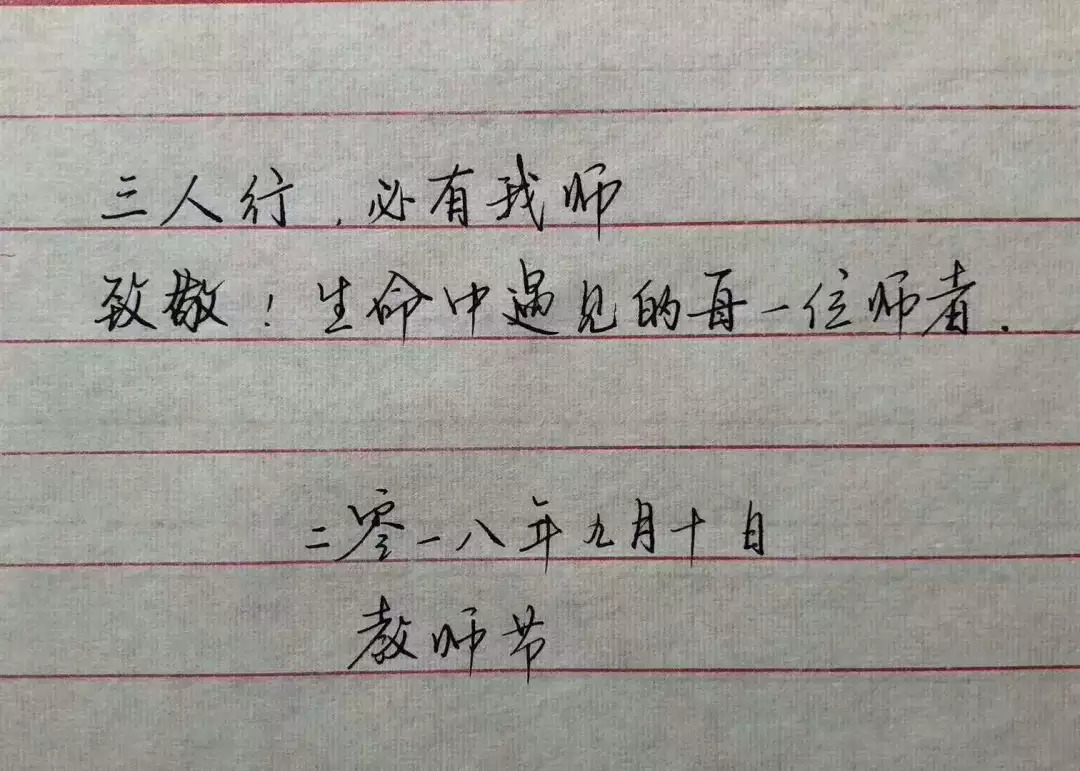 三人行，必有我师
致敬！生命中遇见的每一位师者.
二零一八年九月十日
教师节